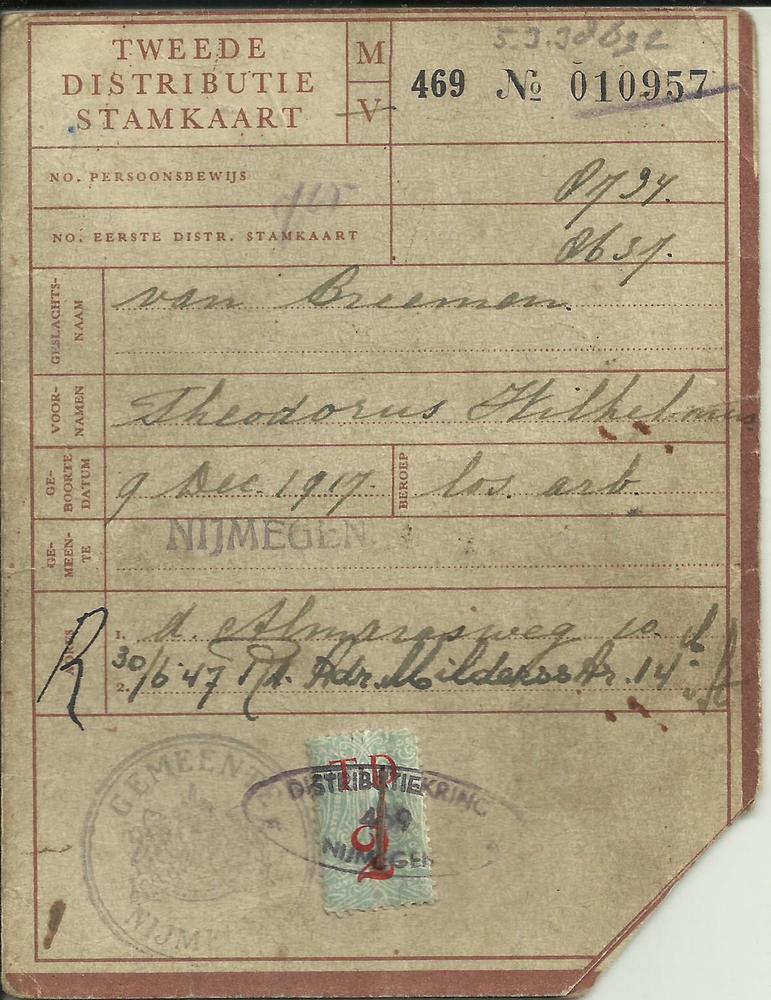 TWEEDE
DISTRIBUTIE
STAMKAART
M
V
469 № 010957
NO. PERSOONSBEWIJS
NO. EERSTE DISTR. STAMKAART
GESLACHTS-
NAAM
van Breemen
VOOR-
NAMEN
Theodorus Wilhelmus
GE-
BOORTE
DATUM
9 Dec. 1917.
BEROEP
los. arb.
GE-
MEEN-
TE
NIJMEGEN
ADRES
R
1. d. Almarasweg 10.
2. 30/6 47 Adr. Mildersstr. 14
GEMEENTE
NIJMEGEN
T D
2
DISTRIBUTIEKRING
469
NIJMEGEN